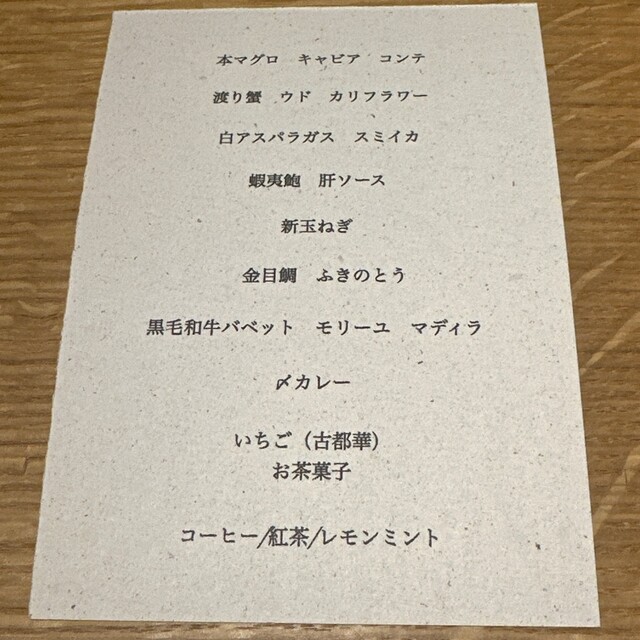 本マグロ　キャビア　コンテ
渡り蟹　ウド　カリフラワー
白アスパラガス　スミイカ
蝦夷鮑　肝ソース
新玉ねぎ
金目鯛　ふきのとう
黒毛和牛バベット　モリーユ　マディラ
〆カレー
いちご（古都華）
お茶菓子
コーヒー/紅茶/レモンミント